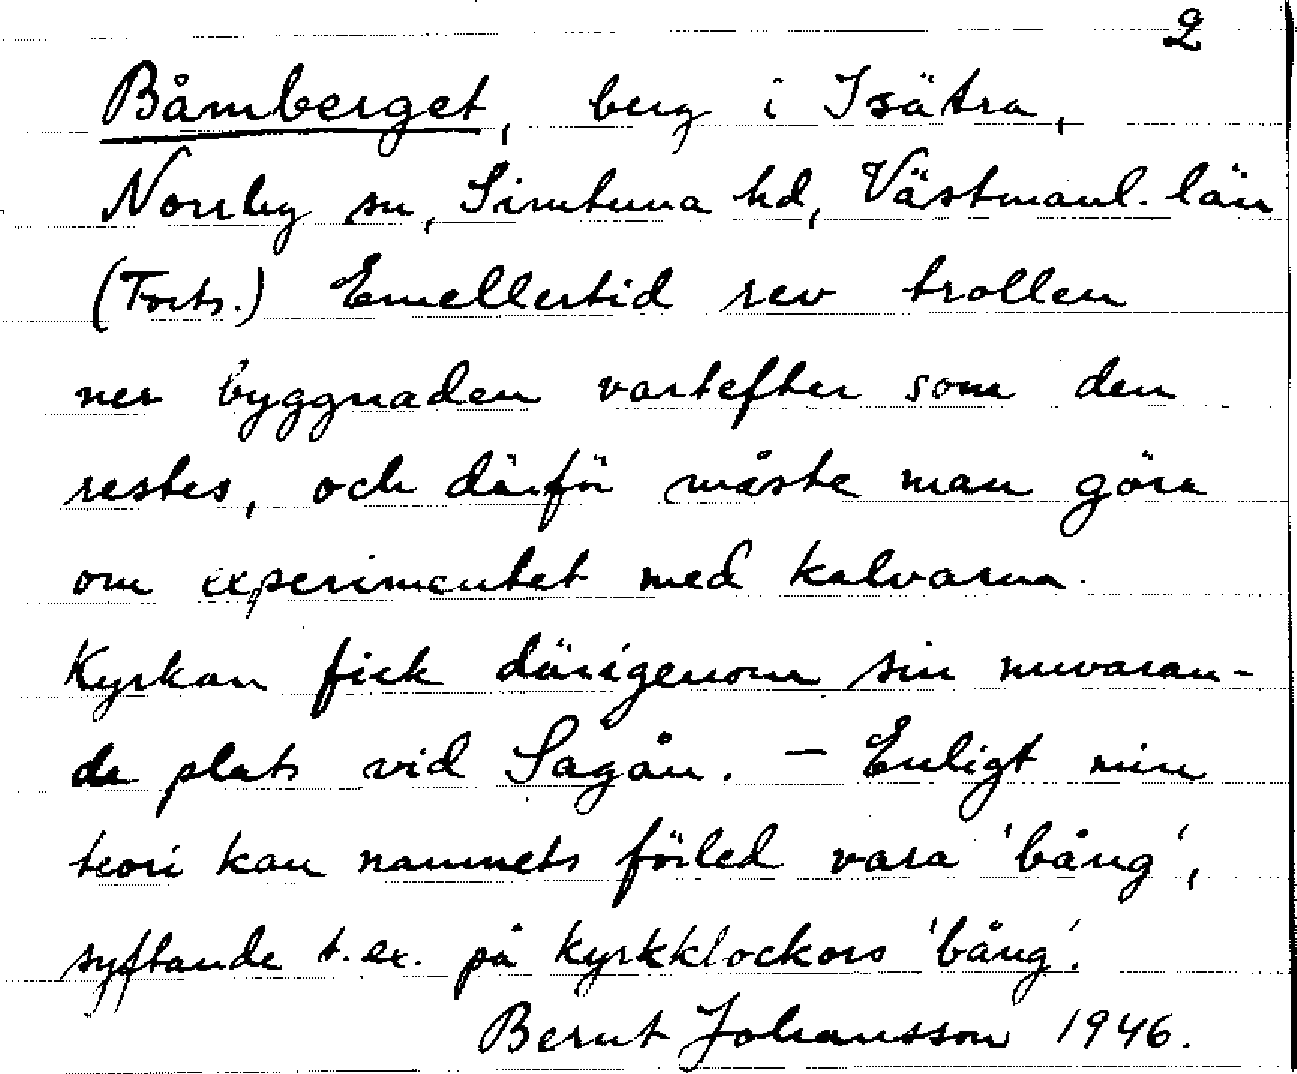 2
Båmberget, berg i Isätra,
Norrby sn, Simtuna hd, Västmanl. län
(Forts.) Emellertid rev trollen
ner byggnaden vartefter som den
restes, och därför måste man göra
om experimentet med kalvarna.
Kyrkan fick därigenom sin nuvaran-
de plats vid Sagån. — Enligt min
teori kan namnets förled vara 'bång',
syftande t.ex. på kyrkklockors 'bång'.
Bernt Johansson 1946.